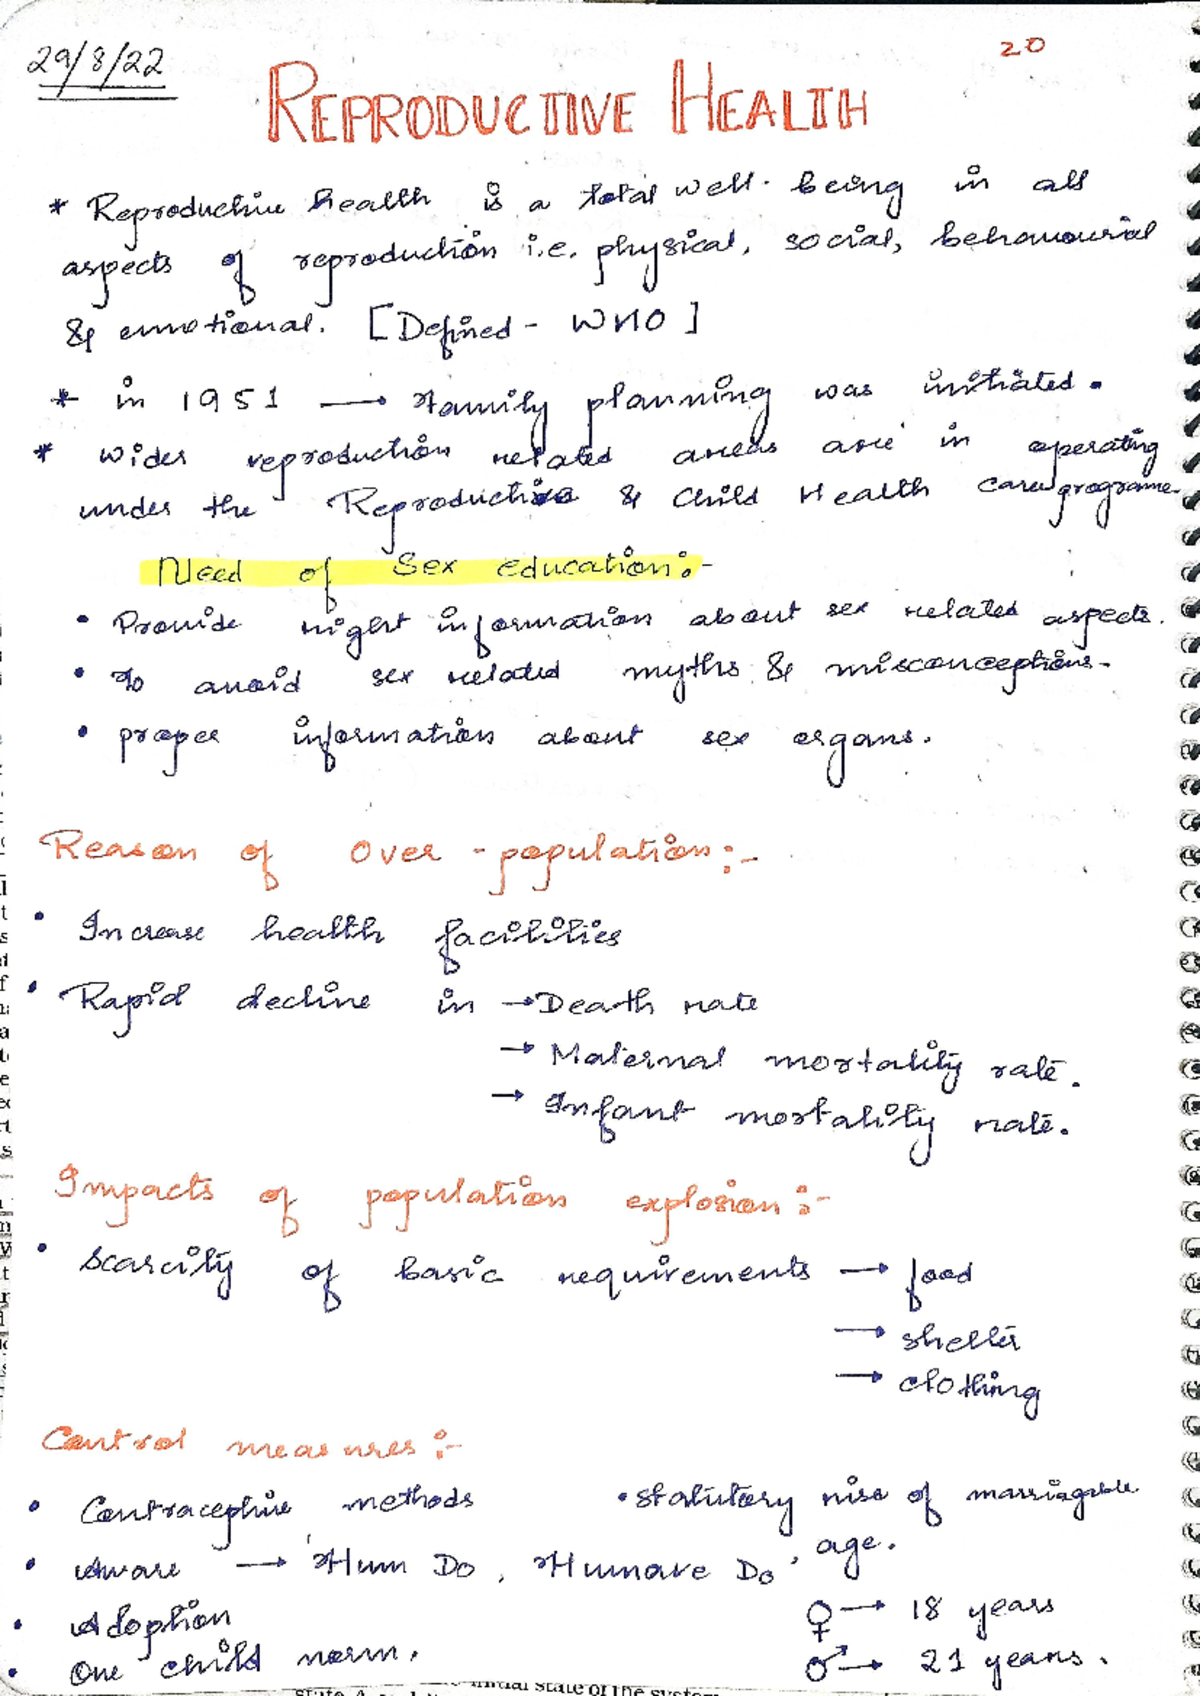 29/8/22
20
REPRODUCTIVE HEALTH
* Reproductive health is a total well-being in all
aspects of reproduction i.e. physical, social, behavourial
& emotional. [Defined - WHO]
* in 1951 → family planning was initiated.
* wider reproduction related areas are in operating
under the Reproductive & Child Health care programe.
Need of Sex education:-
• Provide right information about sex related aspects.
• To avoid sex related myths & misconceptions.
• proper information about sex organs.
Reason of Over-population:-
• Increase health facilities
• Rapid decline in → Death rate
→ Maternal mortality rate.
→ Infant mortality rate.
Impacts of population explosion:-
• Scarcity of basic requirements → food
→ shelter
→ clothing
Control measures:-
• Contraceptive methods
• Aware → 'Hum Do, Humare Do'
• Adoption
• One child norm.
• Statutory rise of marriagable
age.
♀ → 18 years
♂ → 21 years.
initial state of the system